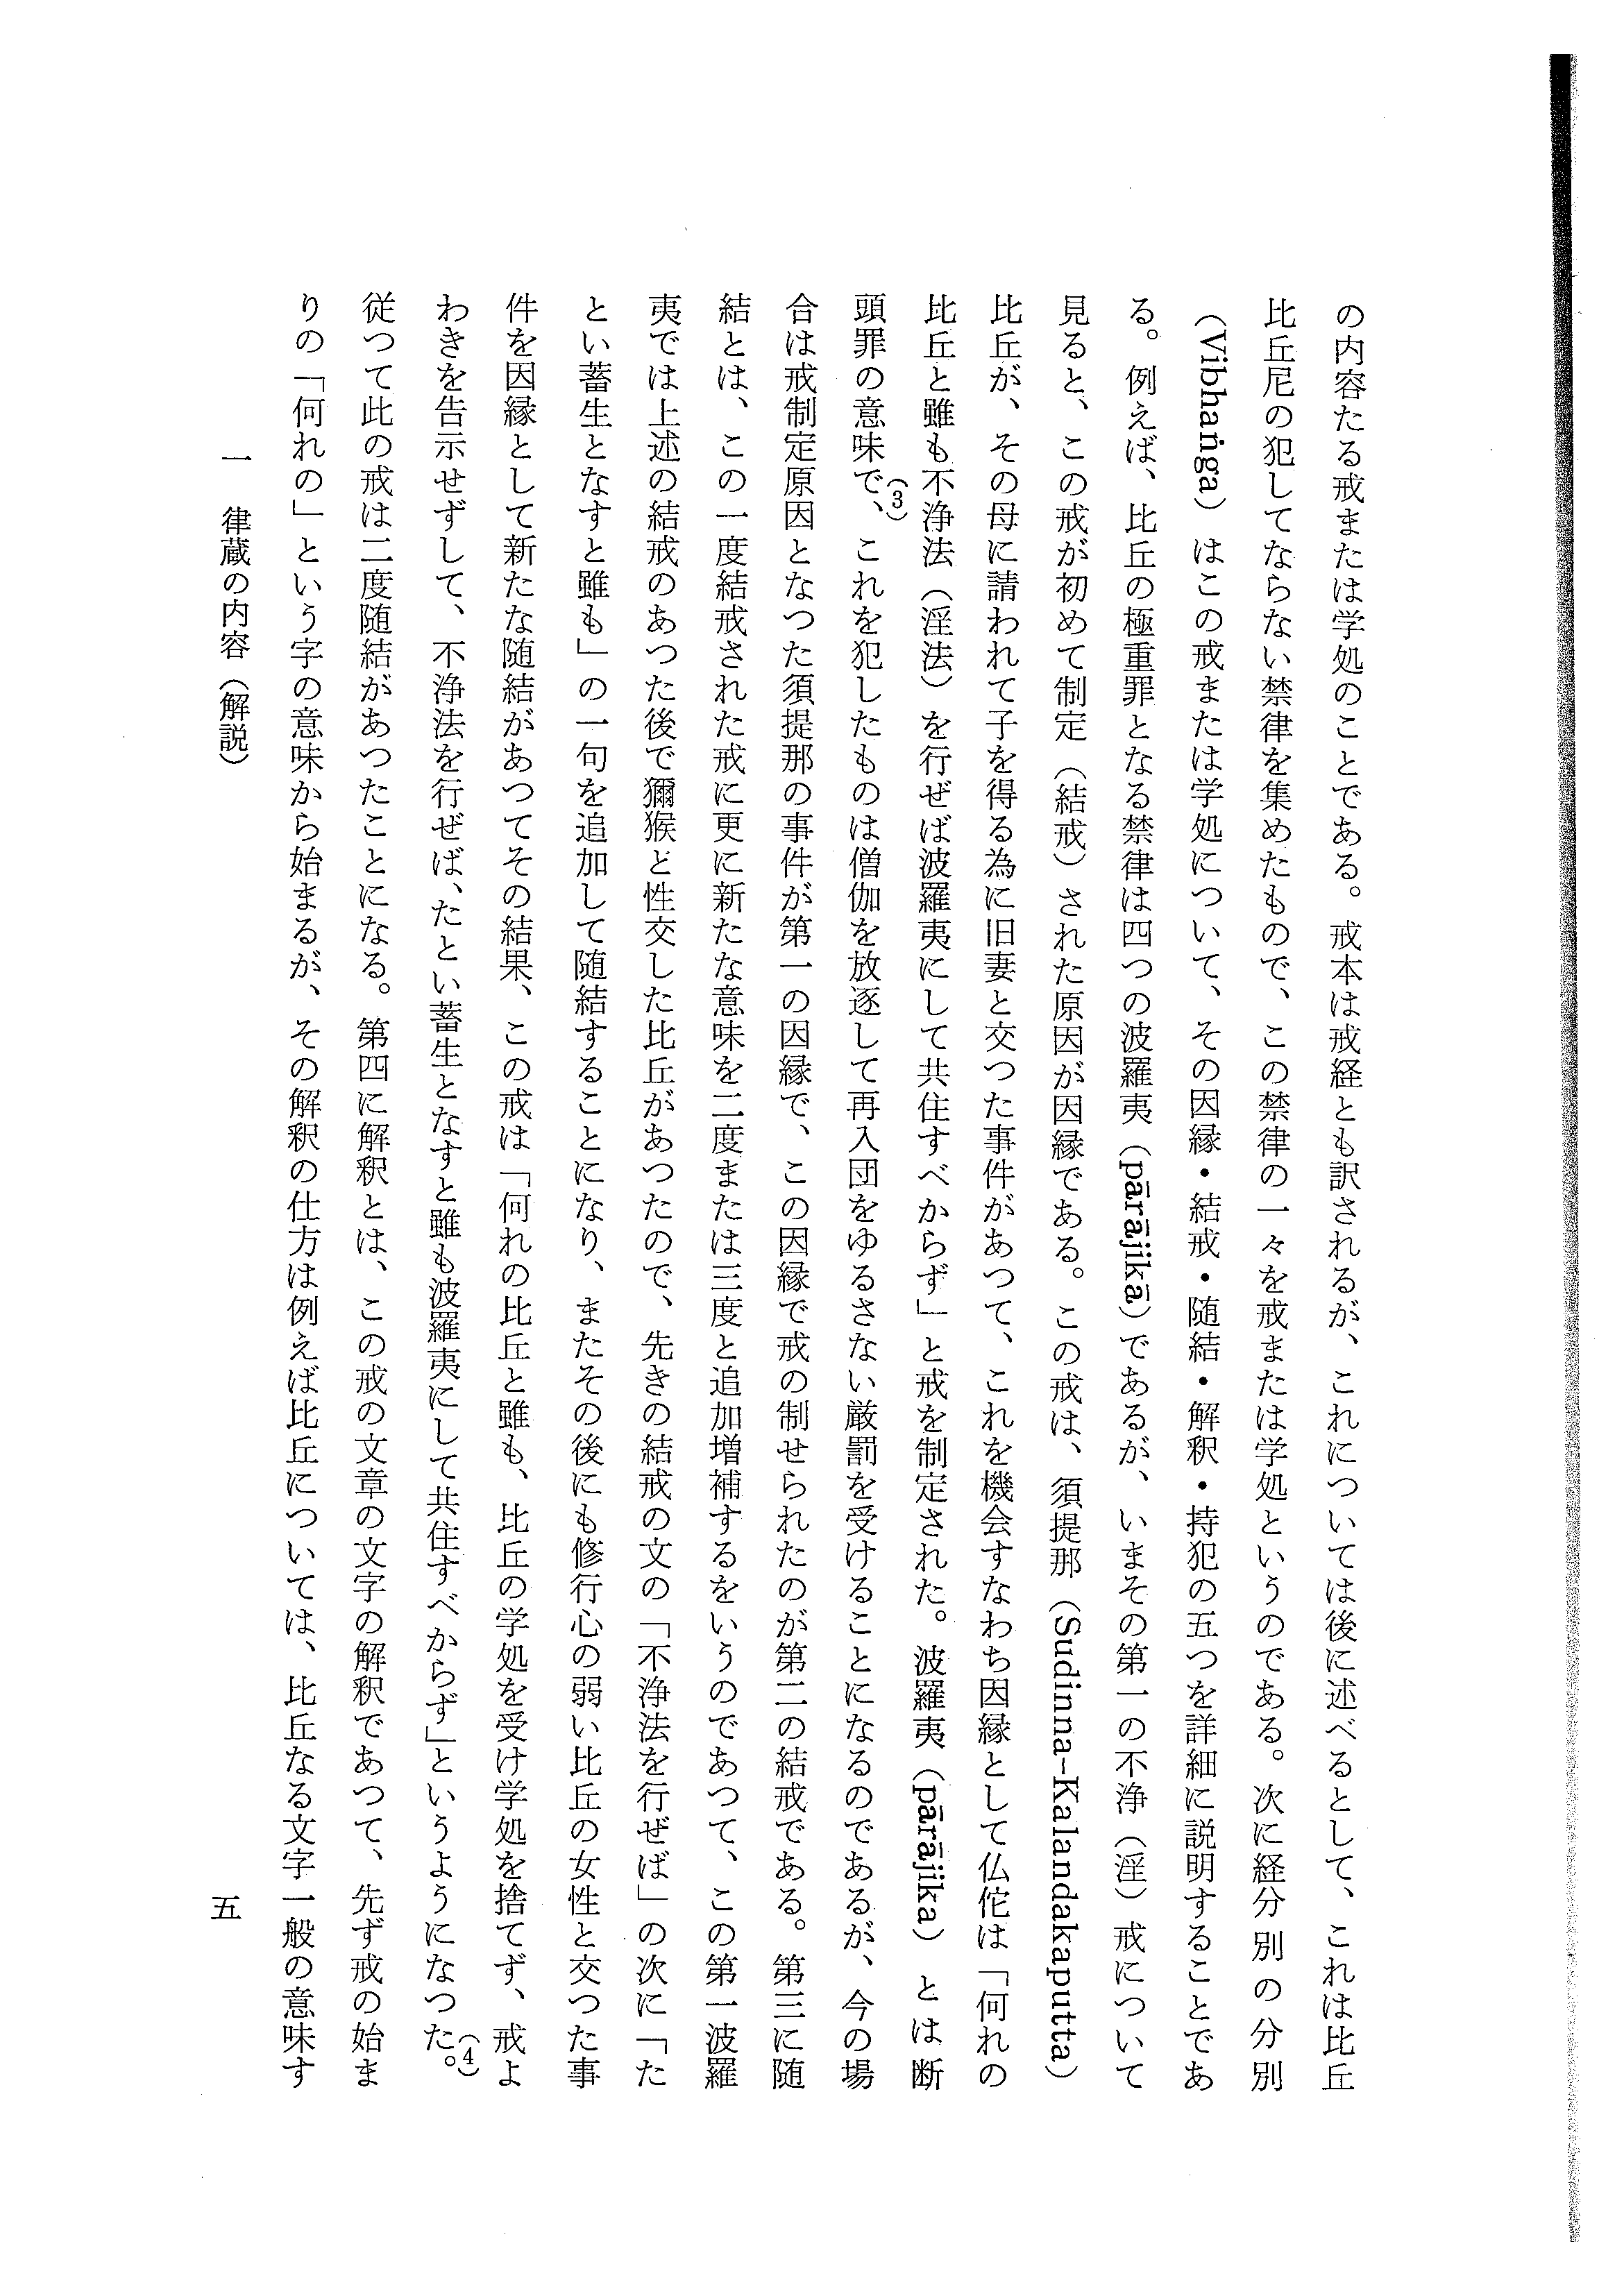 の内容たる戒または学処のことである。戒本は戒経とも訳されるが、これについては後に述べるとして、これは比丘
比丘尼の犯してならない禁律を集めたもので、この禁律の一々を戒または学処というのである。次に経分別の分別
（Vibhaṅga）はこの戒または学処について、その因縁・結戒・随結・解釈・持犯の五つを詳細に説明することであ
る。例えば、比丘の極重罪となる禁律は四つの波羅夷（pārājikā）であるが、いまその第一の不浄（淫）戒について
見ると、この戒が初めて制定（結戒）された原因が因縁である。この戒は、須提那（Sudinna-Kalandakaputta）
比丘が、その母に請われて子を得る為に旧妻と交つた事件があつて、これを機会すなわち因縁として仏佗は「何れの
比丘と雖も不浄法（淫法）を行ぜば波羅夷にして共住すべからず」と戒を制定された。波羅夷（pārājika）とは断
頭罪の意味で、(3)これを犯したものは僧伽を放逐して再入団をゆるさない厳罰を受けることになるのであるが、今の場
合は戒制定原因となつた須提那の事件が第一の因縁で、この因縁で戒の制せられたのが第二の結戒である。第三に随
結とは、この一度結戒された戒に更に新たな意味を二度または三度と追加増補するをいうのであつて、この第一波羅
夷では上述の結戒のあつた後で獼猴と性交した比丘があつたので、先きの結戒の文の「不浄法を行ぜば」の次に「た
とい蓄生となすと雖も」の一句を追加して随結することになり、またその後にも修行心の弱い比丘の女性と交つた事
件を因縁として新たな随結があつてその結果、この戒は「何れの比丘と雖も、比丘の学処を受け学処を捨てず、戒よ
わきを告示せずして、不浄法を行ぜば、たとい蓄生となすと雖も波羅夷にして共住すべからず」というようになつた。(4)
従つて此の戒は二度随結があつたことになる。第四に解釈とは、この戒の文章の文字の解釈であつて、先ず戒の始ま
りの「何れの」という字の意味から始まるが、その解釈の仕方は例えば比丘については、比丘なる文字一般の意味す
一　律蔵の内容（解説）
五